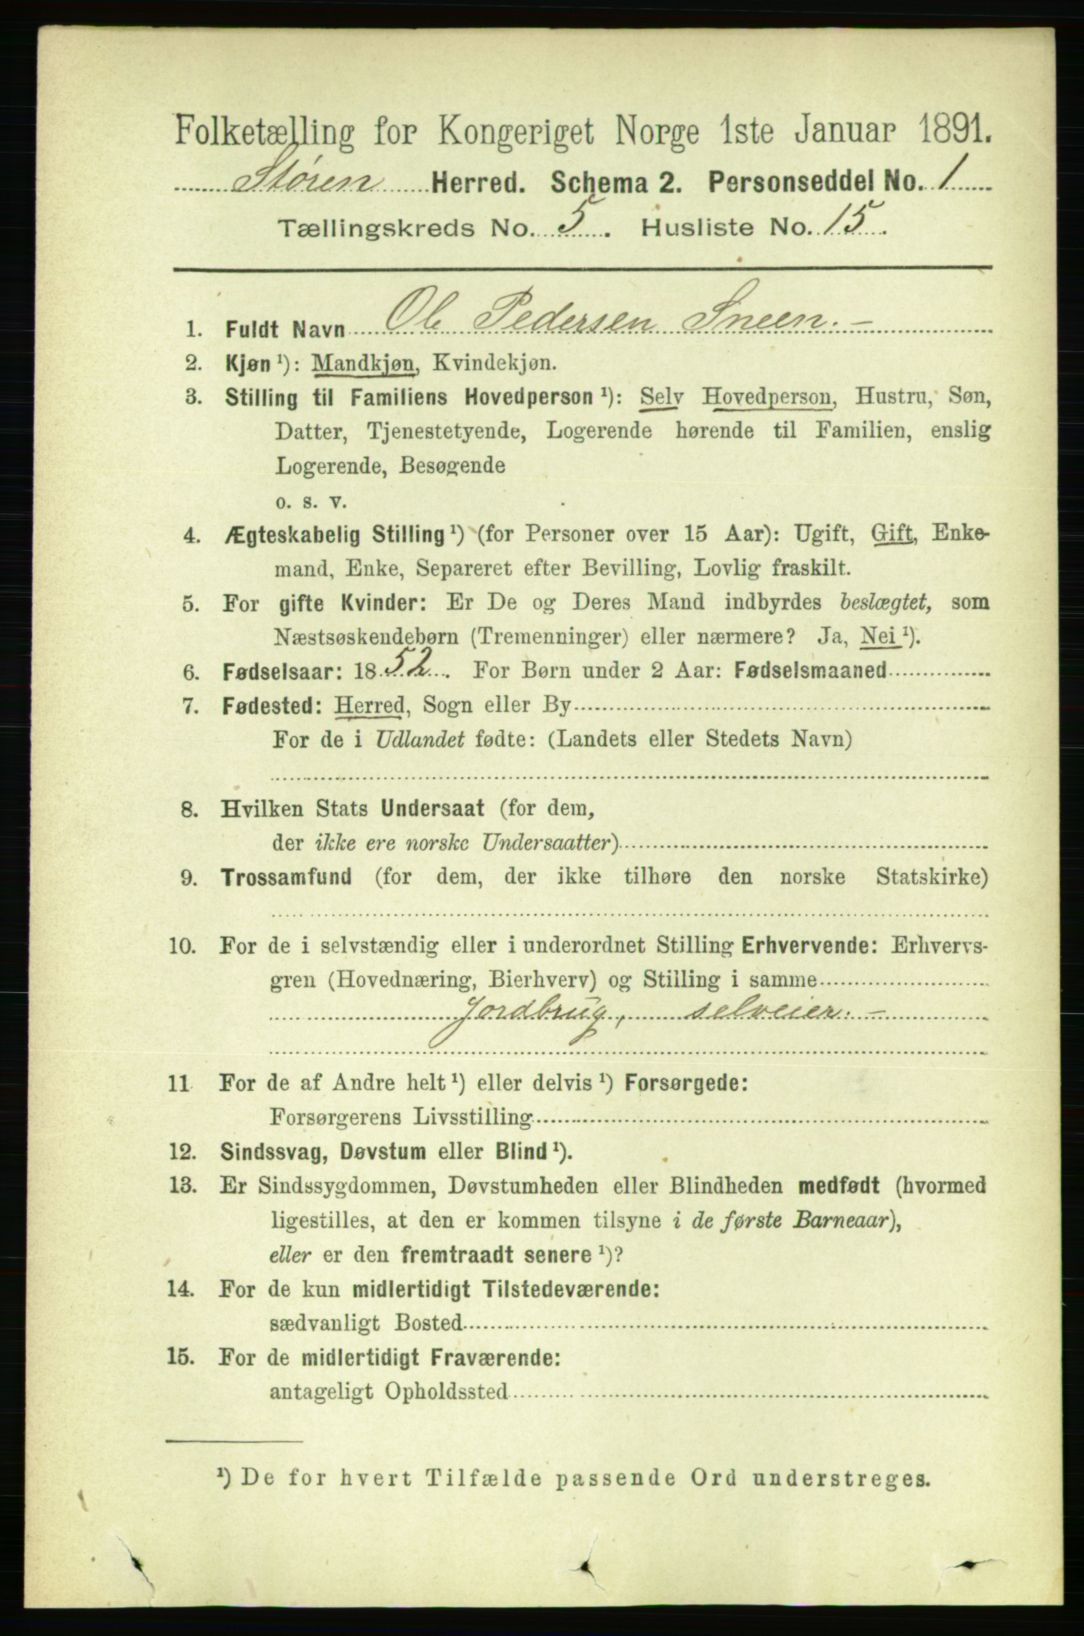 Folketælling for Kongeriget Norge 1ste Januar 1891.
Støren Herred. Schema 2. Personseddel No. 1
Tællingskreds No. 5. Husliste No. 15.
1. Fuldt Navn Ole Pedersen Sneen. –
2. Kjøn ¹): Mandkjøn, Kvindekjøn.
3. Stilling til Familiens Hovedperson ¹): Selv Hovedperson, Hustru, Søn,
Datter, Tjenestetyende, Logerende hørende til Familien, enslig
Logerende, Besøgende
o. s. v.
4. Ægteskabelig Stilling ¹) (for Personer over 15 Aar): Ugift, Gift, Enke-
mand, Enke, Separeret efter Bevilling, Lovlig fraskilt.
5. For gifte Kvinder: Er De og Deres Mand indbyrdes beslægtet, som
Næstsøskendebørn (Tremenninger) eller nærmere? Ja, Nei ¹).
6. Fødselsaar: 1852. For Børn under 2 Aar: Fødselsmaaned
7. Fødested: Herred, Sogn eller By
For de i Udlandet fødte: (Landets eller Stedets Navn)
8. Hvilken Stats Undersaat (for dem,
der ikke ere norske Undersaatter)
9. Trossamfund (for dem, der ikke tilhøre den norske Statskirke)
10. For de i selvstændig eller i underordnet Stilling Erhvervende: Erhvervs-
gren (Hovednæring, Bierhverv) og Stilling i samme
Jordbrug, selveier. –
11 For de af Andre helt ¹) eller delvis ¹) Forsørgede:
Forsørgerens Livsstilling
12. Sindssvag, Døvstum eller Blind ¹).
13. Er Sindssygdommen, Døvstumheden eller Blindheden medfødt (hvormed
ligestilles, at den er kommen tilsyne i de første Barneaar),
eller er den fremtraadt senere ¹)?
14. For de kun midlertidigt Tilstedeværende:
sædvanligt Bosted
15. For de midlertidigt Fraværende:
antageligt Opholdssted
¹) De for hvert Tilfælde passende Ord understreges.